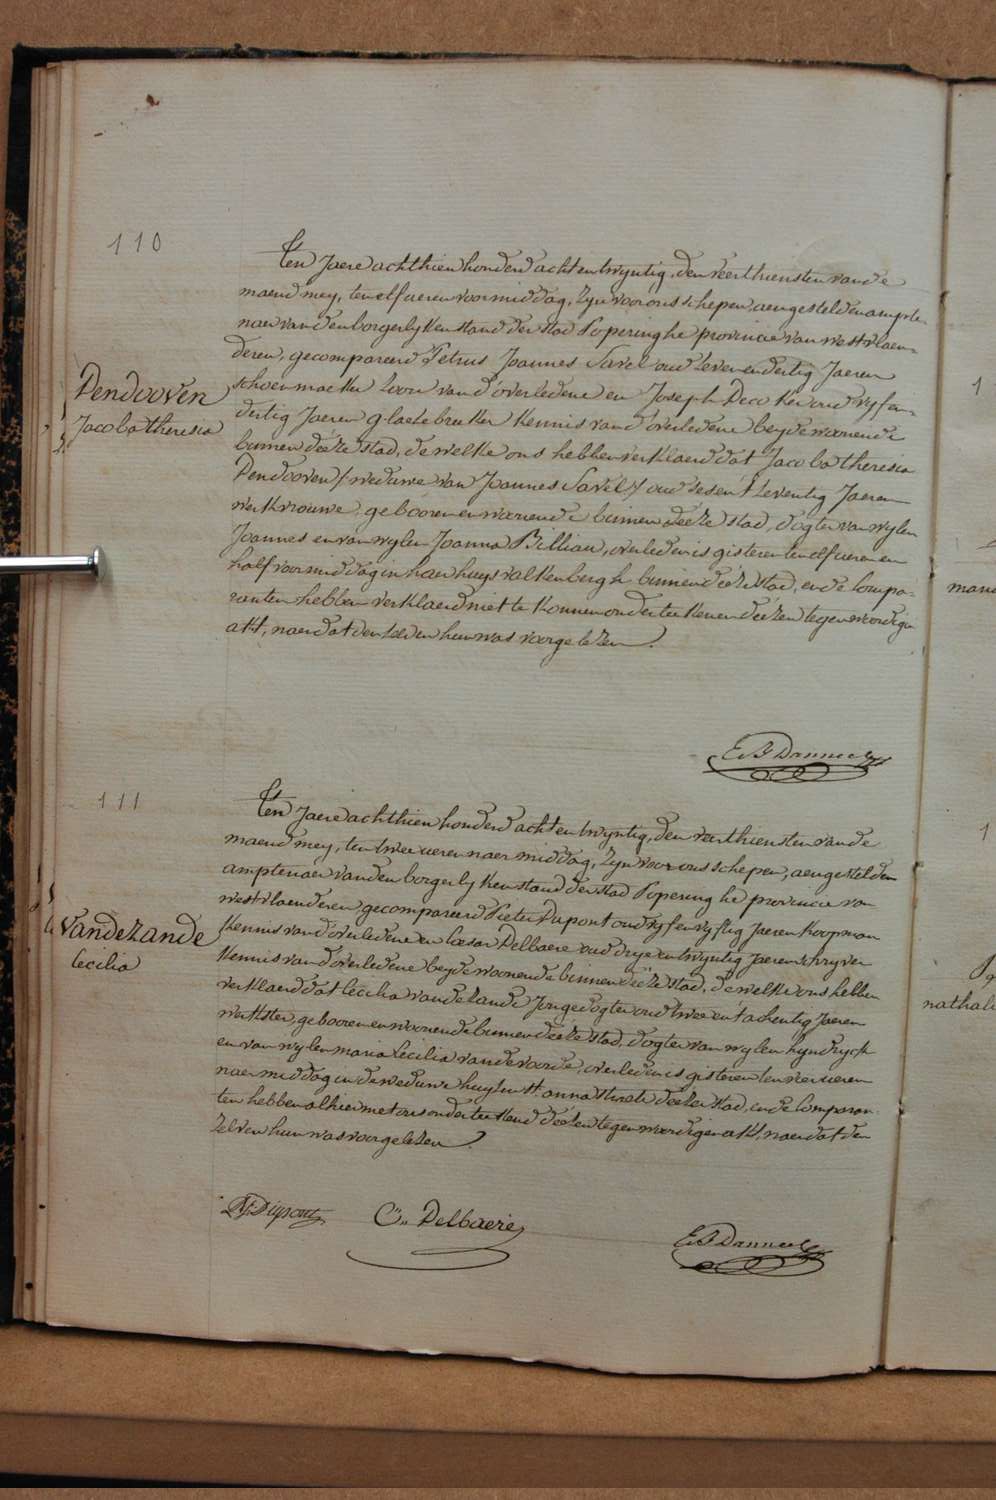 110
Dendooven
Jacoba theresia
Ten Jaere achthien honderd acht en twyntig, den veerthiensten van de
maend mey, ten elf ueren voormiddag, Zyn voor ons schepen, aengestelden ampte-
naer van den borgerlyken stand der stad Poperinghe provincie van westvlaen-
deren, gecompareerd Petrus Joannes Savel oud zeven en dertig Jaeren
schoenmaeker Zoon van d'overledene en Joseph Decoker oud vyf en
dertig Jaeren glaezebreker Kennis van d'overledene beyde woonende
binnen deeze stad, de welke ons hebben verklaerd dat Jacoba theresia
Dendooven / weduwe van Joannes Savel / oud sesen't zeventig Jaeren
werkvrouwe, gebooren en woonende binnen deeze stad, dogter van wylen
Joannes en van wylen Joanna Billiau, overleden is gisteren ten elf ueren en
half voormiddag in haer huys valkenbergh binnen deeze stad, en de Compa-
ranten hebben verklaerd niet te konnen onderteekenen deezen tegenwoordigen
akt, naer dat den zelven hun was voorgelezen.
E B Danneel
111
Vandezande
Cecilia
Ten Jaere achthien honderd acht en twyntig, den veerthiensten van de
maend mey, ten twee ueren naermiddag, Zyn voor ons schepen, aengestelden
amptenaer van den borgerlyken stand der stad Poperinghe provincie van
westvlaenderen, gecompareerd Pieter Dupont oud vyf en vyftig Jaeren Koopman
Kennis van d'overledene en Cesar Delbaere oud drye en twyntig Jaeren schryver
Kennis van d'overledene beyde woonende binnen deeze stad, de welke ons hebben
verklaerd dat Cecilia vandezande Jongedogter oud twee en't achentig Jaeren
werkster, gebooren en woonende binnen deeze stad, dogter van wylen hyndryck
en van wylen maria Cecilia vandevoorde, overleden is gisteren ten vier ueren
naermiddag in de weduwe huyzen St. anna straete deezer stad, en de Comparan-
ten hebben alhier met ons onderteekend deezen tegenwoordigen akt, naer dat den
Zelven hun was voorgelezen.
P. Dupont
C:: Delbaere
E B Danneel
1
mane
1
nathali